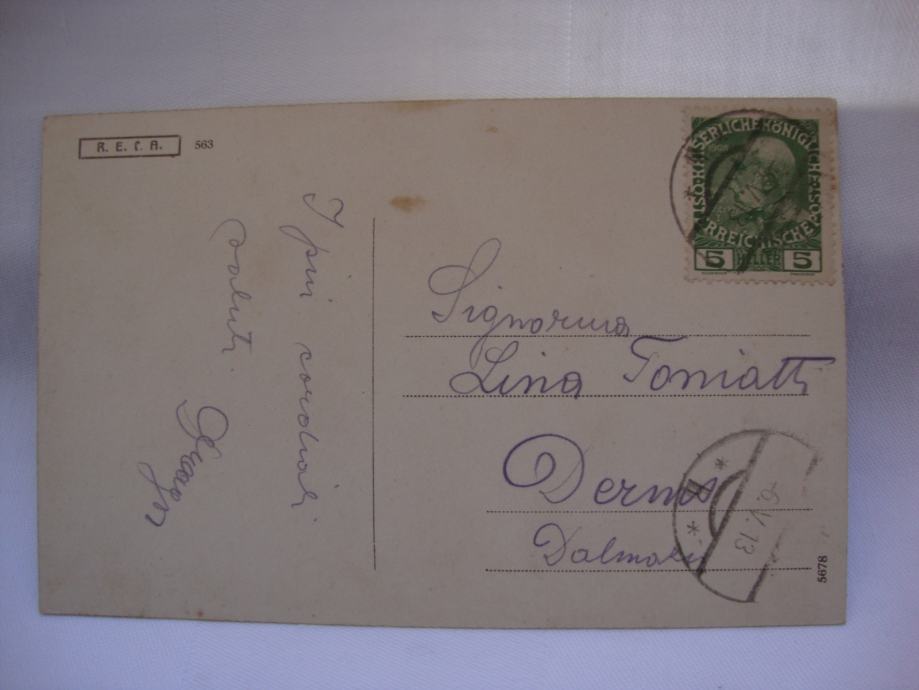 R. E. C. A. 563
I più cordiali
saluti
KAISERLICHE KÖNIGLICHE
ÖSTERREICHISCHE POST
1908
5 HELLER 5
Signorina
Lina Toniatti
Dernis
Dalmazia
6.V.13
5678